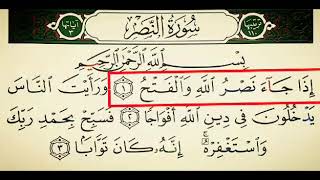 آياتها ٣ سُورَةُ النَّصْرِ ترتيبها ١١٠
بِسْمِ اللَّهِ الرَّحْمَٰنِ الرَّحِيمِ
إِذَا جَاءَ نَصْرُ اللَّهِ وَالْفَتْحُ ١ وَرَأَيْتَ النَّاسَ
يَدْخُلُونَ فِي دِينِ اللَّهِ أَفْوَاجًا ٢ فَسَبِّحْ بِحَمْدِ رَبِّكَ
وَاسْتَغْفِرْهُ ۚ إِنَّهُ كَانَ تَوَّابًا ٣